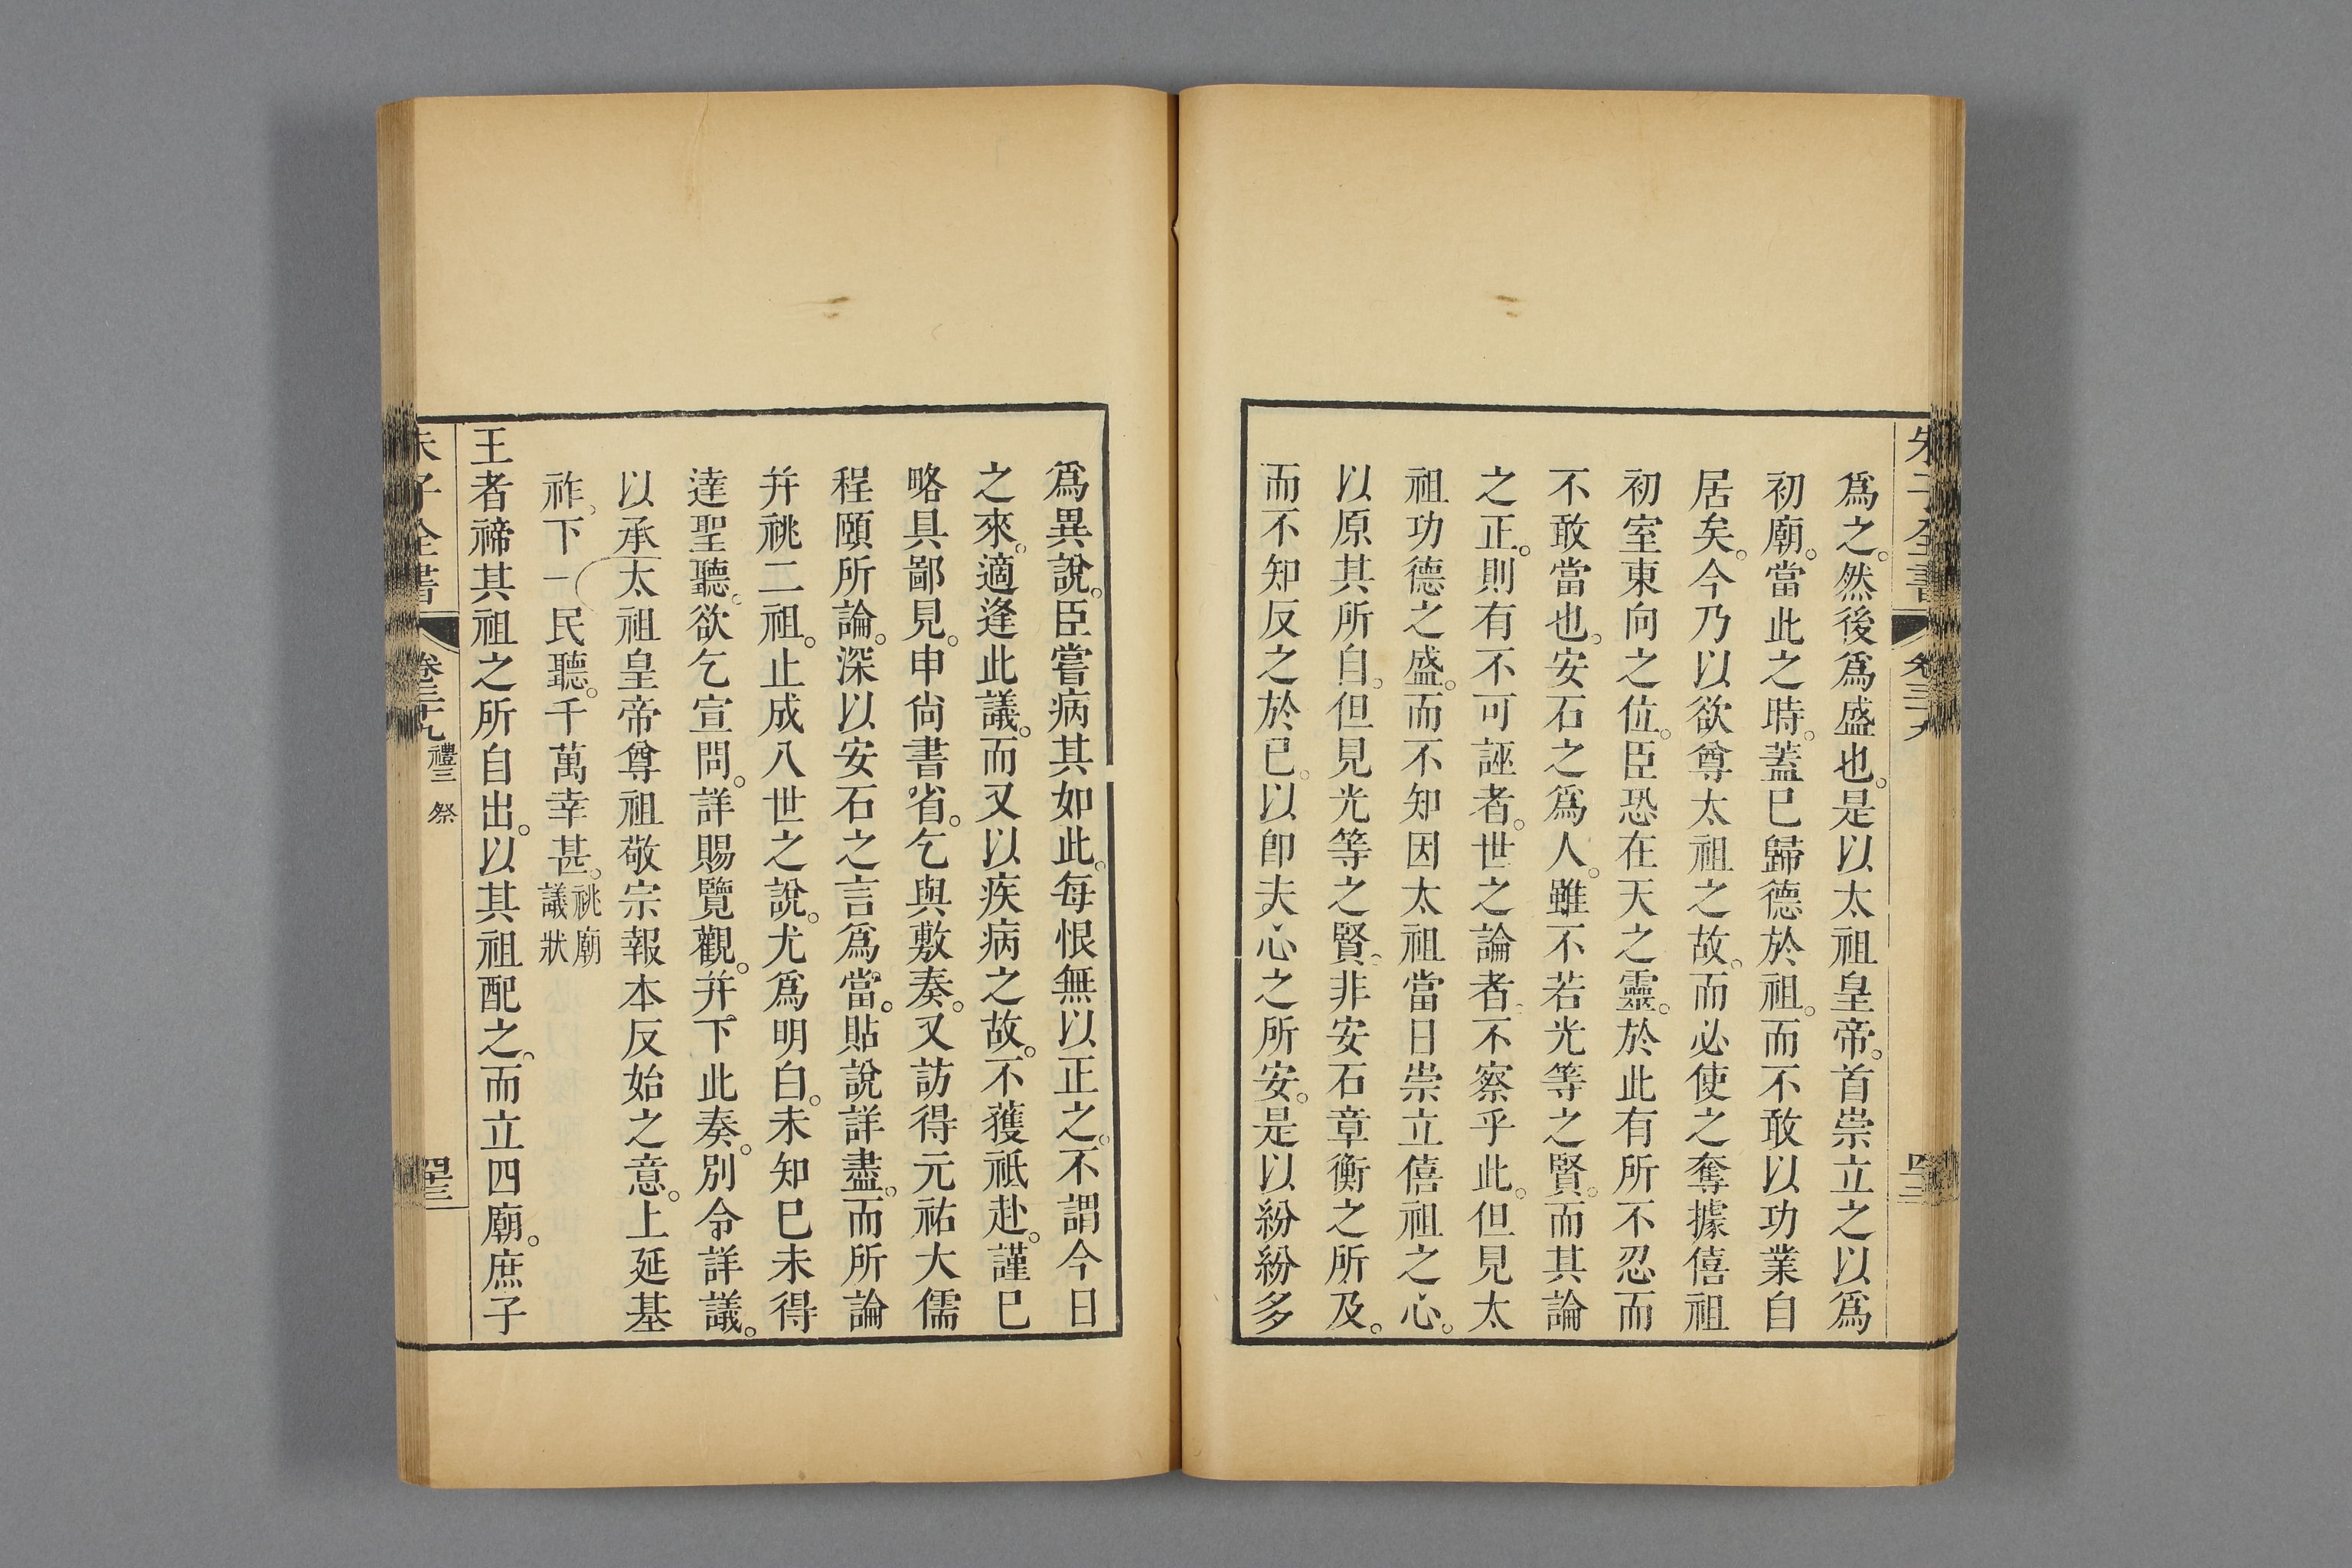 爲之。然後爲盛也。是以太祖皇帝。首崇立之以爲
初廟。當此之時。蓋已歸德於祖。而不敢以功業自
居矣。今乃以欲尊太祖之故。而必使之奪據僖祖
初室東向之位。臣恐在天之靈。於此有所不忍而
不敢當也。安石之爲人。雖不若光等之賢。而其論
之正。則有不可誣者。世之論者。不察乎此。但見太
祖功德之盛。而不知因太祖當日崇立僖祖之心。
以原其所自。但見光等之賢。非安石章衡之所及。
而不知反之於已。以卽夫心之所安。是以紛紛多
爲異說。臣嘗病其如此。每恨無以正之。不謂今日
之來。適逢此議。而又以疾病之故。不獲祗赴。謹已
略具鄙見。申尙書省。乞與敷奏。又訪得元祐大儒
程頤所論。深以安石之言爲當。貼說詳盡。而所論
幷祧二祖。止成八世之說。尤爲明白。未知已未得
達聖聽。欲乞宣問。詳賜覽觀。幷下此奏。別令詳議。
以承太祖皇帝尊祖敬宗報本反始之意。上延基
祚。下一民聽。千萬幸甚。祧廟
議狀
王者禘其祖之所自出。以其祖配之。而立四廟。庶子
朱子全書
卷三十九
禮三 祭
四三